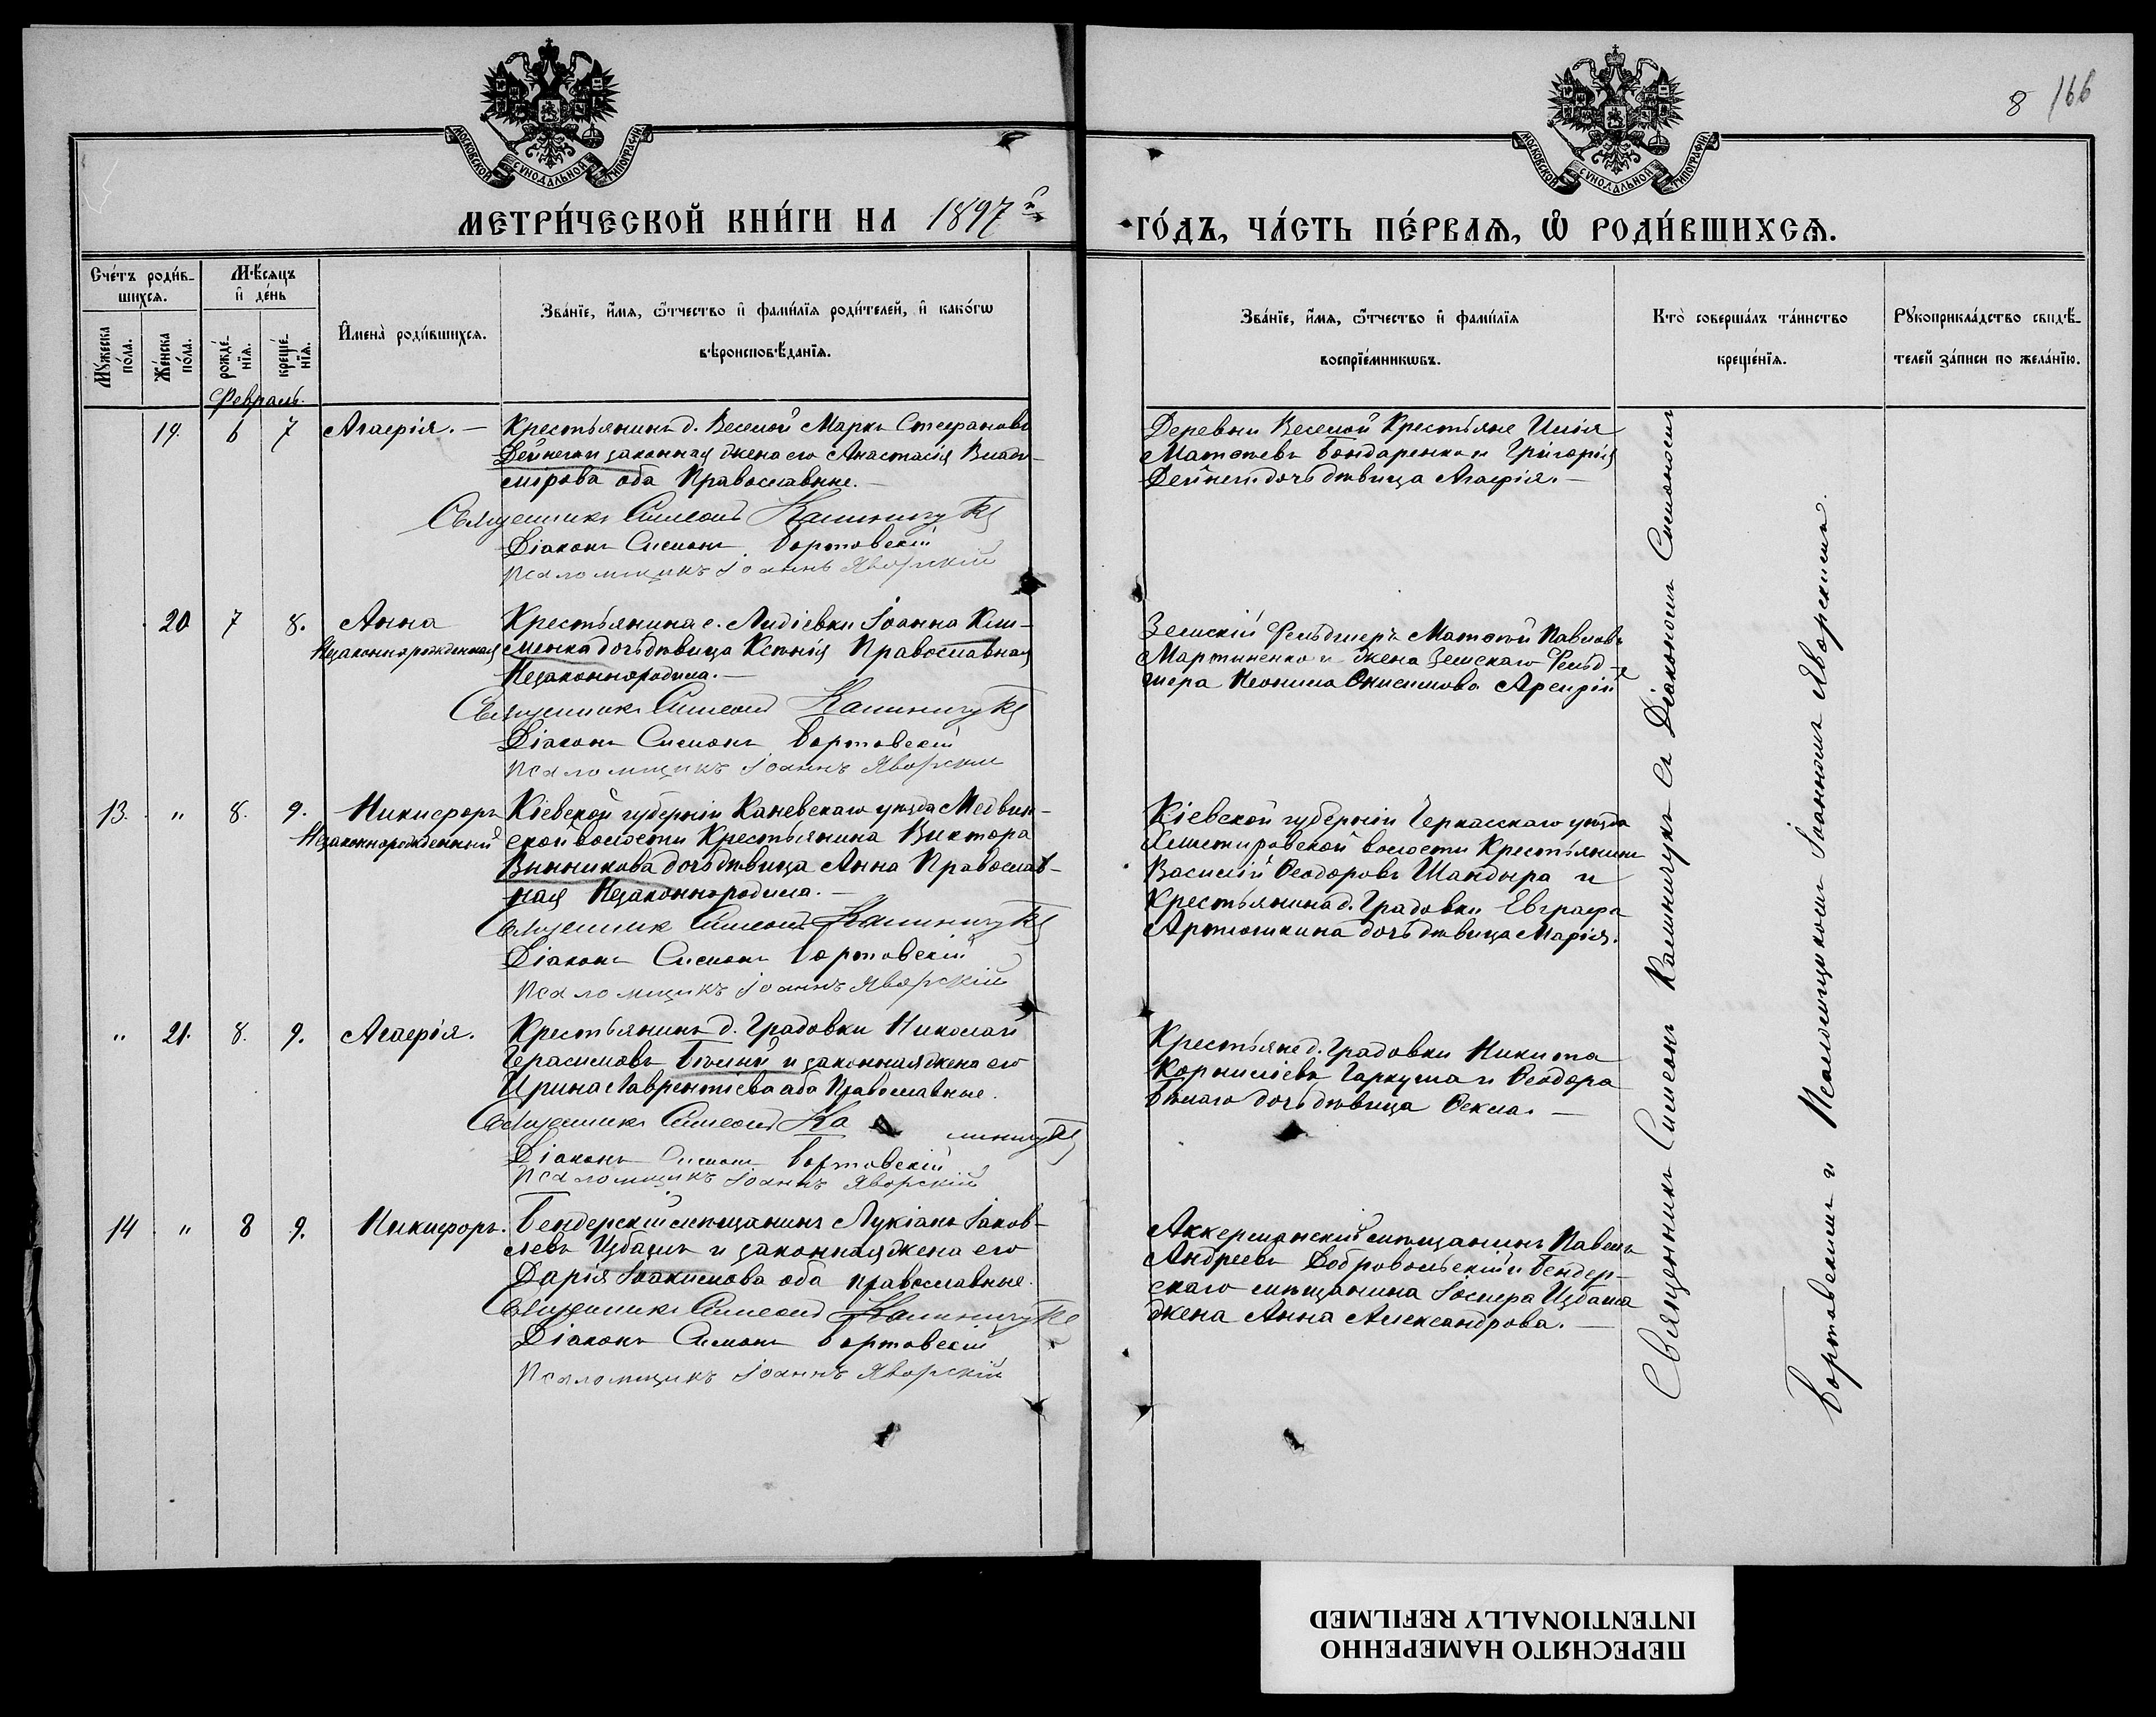 8 166
МОСКОВСКОЙ СѴНОДАЛЬНОЙ ТИПОГРАФІИ
МОСКОВСКОЙ СѴНОДАЛЬНОЙ ТИПОГРАФІИ
МЕТРИ́ЧЕСКОЙ КНИ́ГИ НА 1897 й
ГО́ДЪ, ЧА́СТЬ ПЕ́РВАѦ, Ѽ РОДИ́ВШИХСѦ.
Сче́тъ роди́в-
шихсѧ.
Мꙋ́жеска по́ла.
Же́нска по́ла.
Мѣ́сѧцъ
и҆ де́нь
рожде́нїѧ.
креще́нїѧ.
И҆мена̀ роди́вшихсѧ.
Зва́нїе, и҆́мѧ, ѻ҆́тчество и҆ фами́лїѧ роди́телей, и҆ како́гѡ
вѣроисповѣ́данїѧ.
Зва́нїе, и҆́мѧ, ѻ҆́тчество и҆ фами́лїѧ
воспрїе́мникѡвъ.
Кто̀ соверша́лъ та́инство
креще́нїѧ.
Рꙋкоприкла́дство свидѣ́-
телей за́писи по жела́нїю.
Февраль.
19. 6 7 Агафія. —
Крестьянинъ д. Веселой Марко Стефановъ
Дейнега и законная жена его Анастасія Влади-
мірова оба Православные. —
Священникъ Симеонъ Калиничукъ
Діаконъ Симонъ Бортовскій
Псаломщикъ Іоаннъ Яворскій
Деревни Веселой Крестьяне Илія
Матѳеевъ Бондаренко и Григорія
Дейнеги дочь дѣвица Агафія. —
20 7 8. Анна
Незаконнорожденная
Крестьянина с. Лидіевки Іоанна Кли-
менка дочь дѣвица Ксенія Православная
Незаконнородила. —
Священникъ Симеонъ Калиничукъ
Діаконъ Симонъ Бортовскій
Псаломщикъ Іоаннъ Яворскій
Земскій Фельдшеръ Матѳей Павловъ
Мартыненко и жена Земскаго Фельд-
шера Неонила Онисимова
13. " 8. 9. Никифоръ
Незаконнорожденный
Кіевской губерніи Каневскаго уѣзда Медвин-
ской волости Крестьянина Виктора
Винникова дочь дѣвица Анна Православ-
ная Незаконнородила. —
Священникъ Симеонъ Калиничукъ
Діаконъ Симонъ Бортовскій
Псаломщикъ Іоаннъ Яворскій
Кіевской губерніи Черкасскаго уѣзда
волости Крестьянинъ
Василій Ѳеодоровъ Шандыра и
Крестьянина д. Градовки Евграфа
Артюшкина дочь дѣвица Марія.
" 21. 8. 9. Агафія.
Крестьянинъ д. Градовки Николай
Герасимовъ Бѣлый и законная жена его
Ирина Лаврентіева оба Православные.
Священникъ Симеонъ Калиничукъ
Діаконъ Симонъ Бортовскій
Псаломщикъ Іоаннъ Яворскій
Крестьяне д. Градовки Никита
Корниліевъ Гаркуша и Ѳеодора
Бѣлаго дочь дѣвица Ѳекла. —
14 " 8 9. Никифоръ.
Бендерскій мѣщанинъ Лукіанъ Іаков-
левъ Избашъ и законная жена его
Дарія Іоакимова оба православные.
Священникъ Симеонъ Калиничукъ
Діаконъ Симонъ Бортовскій
Псаломщикъ Іоаннъ Яворскій
Аккерманскій мѣщанинъ Павелъ
Андреевъ Добровольскій и Бендер-
скаго мѣщанина Іосифа Избаша
жена Анна Александрова. —
Священникъ Симеонъ Калиничукъ съ Діакономъ Симономъ
Бортовскимъ и Псаломщикомъ Іоанномъ Яворскимъ.
ПЕРЕСНЯТО НАМЕРЕННО
INTENTIONALLY REFILMED